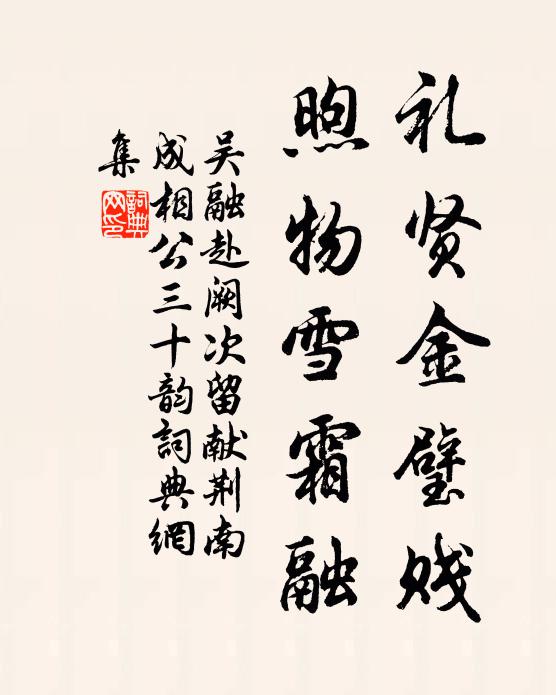 礼贤金璧贱
煦物雪霜融
吴融赴阙次留献荆南
成相公三十韵詞典網
集
詞典网印